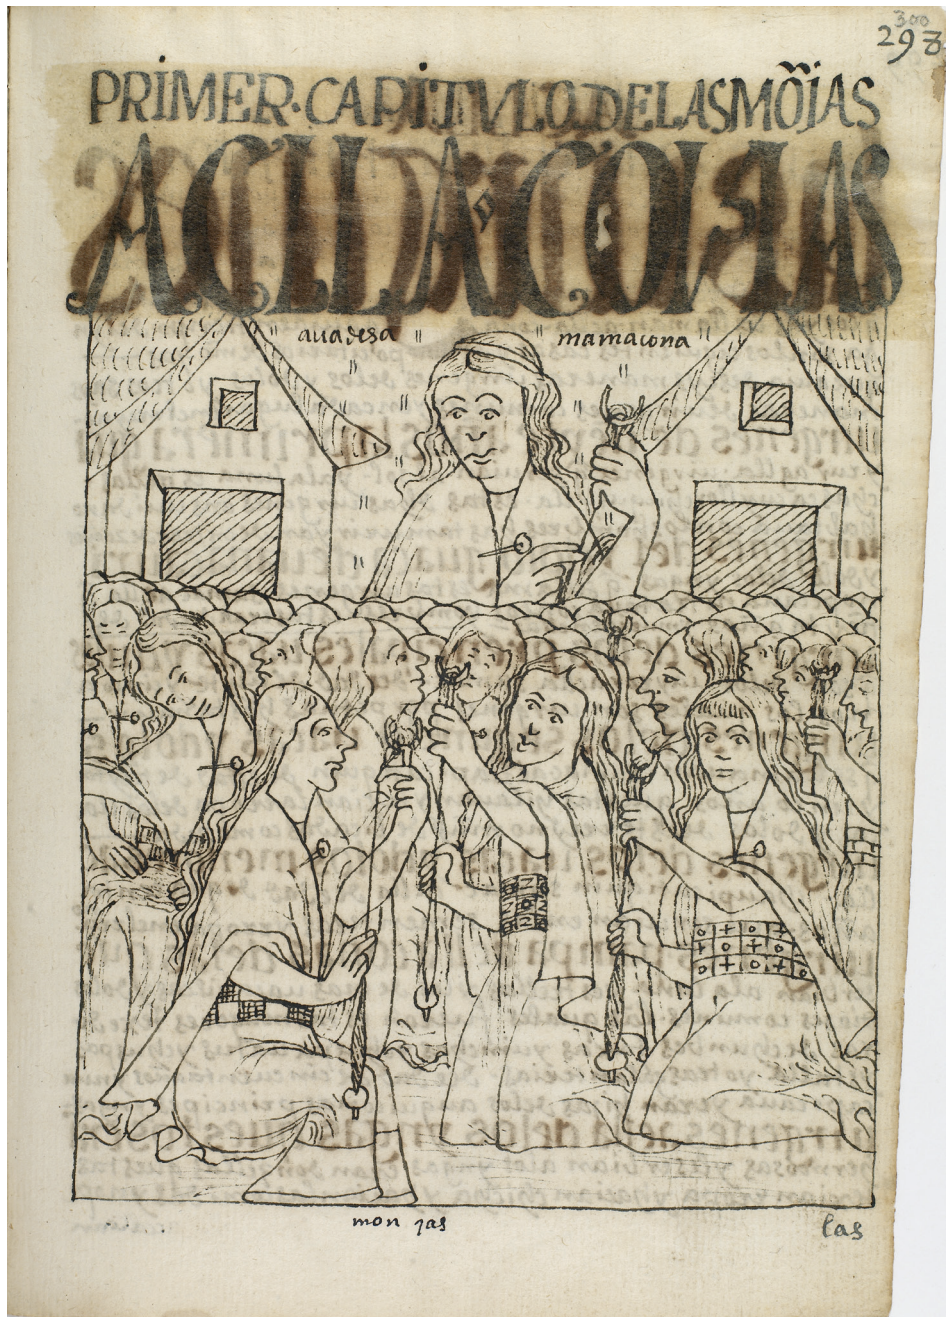 300
298
PRIMER·CAPITVLO DE LAS MÕJAS
ACLLACONAS
auadesa mamacona
monjas
las